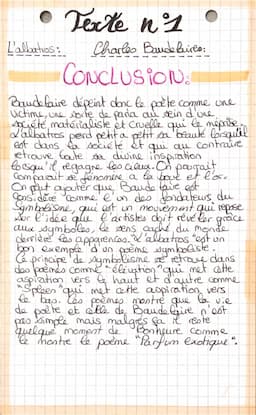 Texte n°1
L'albatros : Charles Baudelaire :
CONCLUSION.
Baudelaire dépeint donc le poète comme une
victime, une sorte de paria au sein d'une
société matérialiste et cruelle qui le méprise.
L'albatros perd petit à petit sa beauté lorsqu'il
est dans la société et qui au contraire
retrouve toute sa divine inspiration
lorsqu'il regagne les cieux. On
comparait ce fénomène à la boue et l'or.
On peut ajouter que Baudelaire est
considéré comme l'un des fondateurs du
symbolisme, qui est un mouvement qui repose
sur l'idée que l'artistes doit révéler grâce
aux symboles, le sens caché du monde
derrière les apparences. L'albatros est un
bon exemple d'un poème symboliste.
Le principe de symbolisme se retrouve dans
des poèmes comme "élévation" qui met cette
aspiration vers le haut et d'autre comme
"Spleen" qui met cette aspiration vers
le bas. Les poèmes montre que la vie
de poète et celle de Baudelaire n'est
pas simple mais malgrés ça il reste
quelque moment de Bonheure comme
le montre le poème "Parfum exotique".